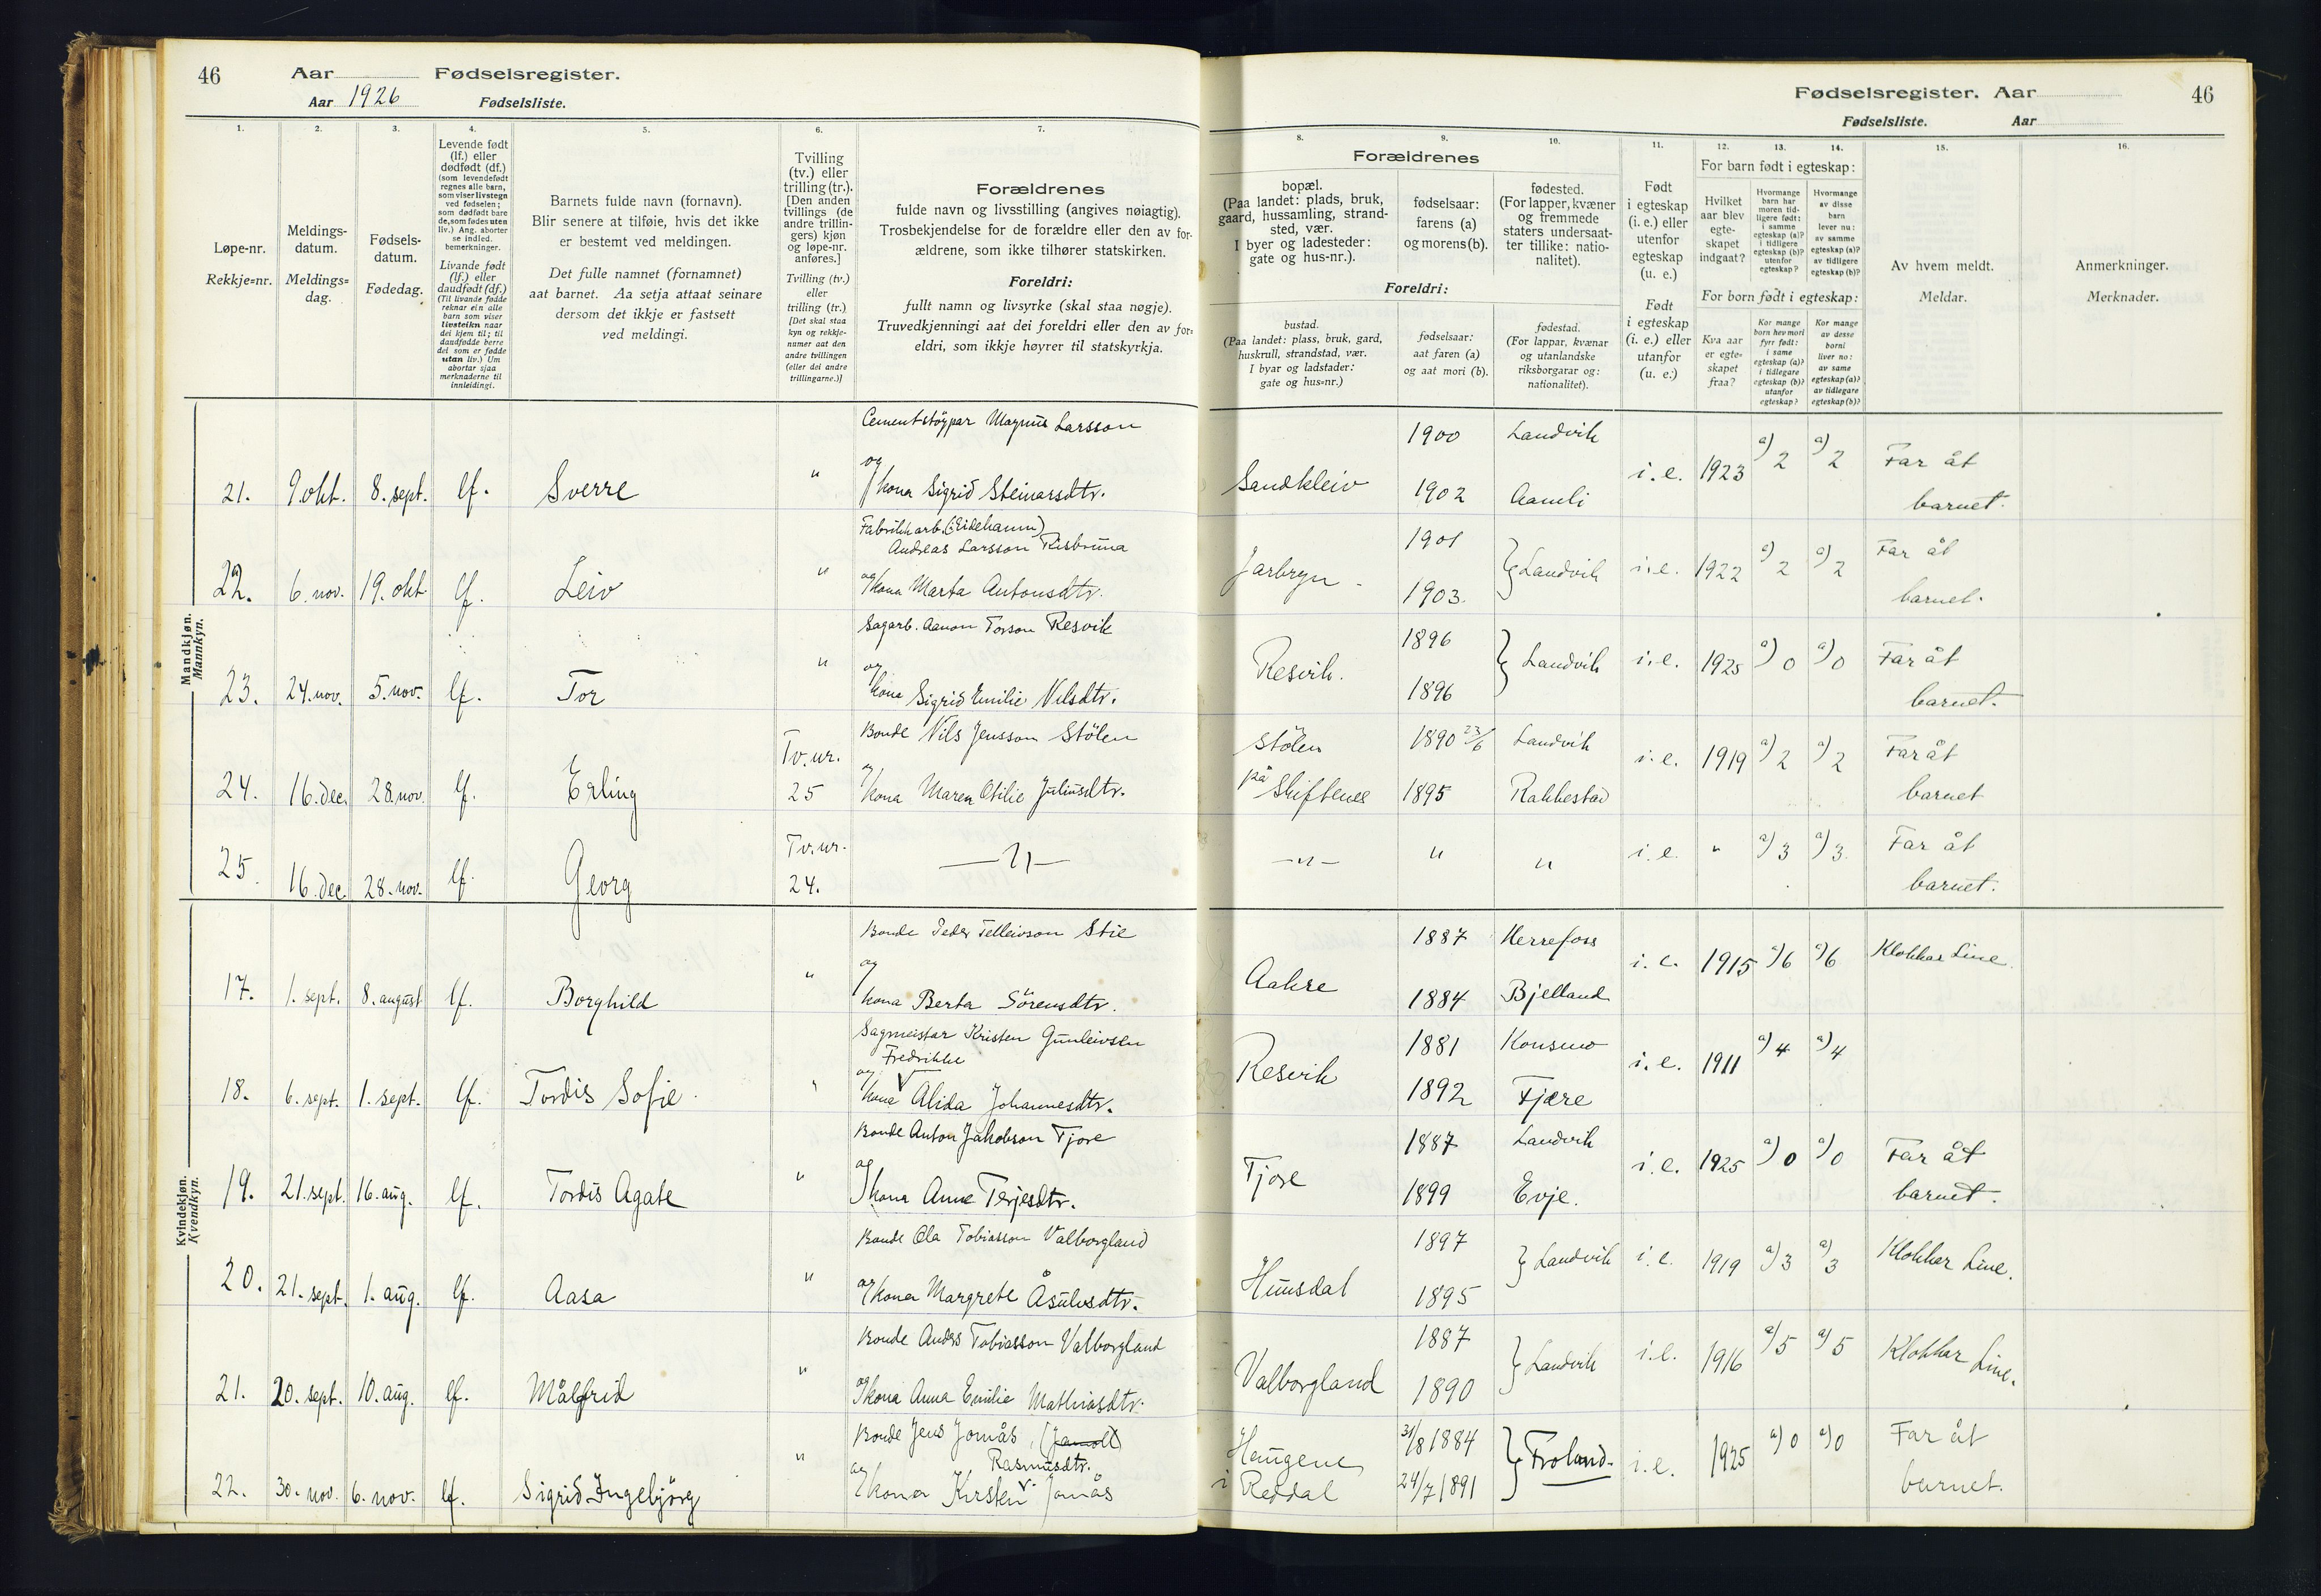 46 Aar Fødselsregister.
Aar 1926 Fødselsliste.
1. 2. 3. 4. 5. 6. 7.
Løpe-nr.
Rekkje=nr.
Meldings-
datum.
Meldings=
dag.
Fødsels-
datum.
Fødedag.
Levende født
(lf.) eller
dødfødt (df.)
(som levendefødt
regnes alle barn,
som viser livstegn
ved fødselen;
som dødfødt bare
de, som fødes uten
liv.) Ang. aborter
se indled.
bemerkninger.
Livande født
(lf.) eller
daudfødt (df.)
(Til livande fødde
reknar ein alle
barn som viser
livsteikn naar
dei kjem til; til
daudfødde berre
dei som er fødde
utan liv.) Um
abortar sjaa
merknaderne til
innleidingi.
Barnets fulde navn (fornavn).
Blir senere at tilføie, hvis det ikke
er bestemt ved meldingen.
Det fulle namnet (fornamnet)
aat barnet. Aa setja attaat seinare
dersom det ikkje er fastsett
ved meldingi.
Tvilling
(tv.) eller
trilling (tr.).
[Den anden
tvillings (de
andre trillin-
gers) kjøn
og løpe-nr.
anføres.]
Tvilling (tv.)
eller
trilling (tr.)
[Det skal staa
kyn og rekkje-
numer aat den
andre tvillingen
(eller dei andre
trillingarne.)]
Forældrenes
fulde navn og livsstilling (angives nøiagtig).
Trosbekjendelse for de forældre eller den av for-
ældrene, som ikke tilhører statskirken.
Foreldri:
fullt namn og livsyrke (skal staa nøgje).
Truvedkjenningi aat dei foreldri eller den av for=
eldri, som ikkje høyrer til statskyrkja.
Mandkjøn.
Mannkyn.
Cementstöypar Magnus Larsson
og
21. 9. okt. 8. sept. lf. Sverre " kona Sigrid Steinarsdtr.
Fabrikkarb. (Eidehamn)
Andreas Larsson Risbruna
22. 6. nov. 19. okt. lf. Leiv " og kona Marta Antonsdtr.
Sagarb. Aanon Torson Resvik
og
23. 24. nov. 5. nov. lf. Tor " kona Sigrid Emilie Nilsdtr.
Bonde Nils Jensson Stölen
Tv. nr.
og
24. 16. dec. 28. nov. lf. Erling 25 kona Maren Otilie Juliusdtr.
Tv. nr.
25. 16. dec. 28. nov. lf. Georg 24. — " —
Kvindekjøn.
Kvendkyn.
Bonde Peder Telleivson Stie
og
17. 1. sept. 8. august lf. Borghild " kona Berta Sörensdtr.
Sagmeistar Kristen Gunleivsen
Fredrikke
og
18. 6. sept. 1. sept. lf. Tordis Sofie " kona Alida Johannesdtr.
Bonde Anton Jakobson Tjore
og
19. 21. sept. 16. aug. lf. Tordis Agate " kona Anne Terjesdtr.
Bonde Ola Tobiasson Valborgland
20. 21. sept. 1. aug. lf. Aasa " og kona Margrete Åsulvsdtr.
Bonde Anders Tobiasson Valborgland
21. 20. sept. 10. aug. lf. Målfrid " og kona Anna Emilie Mathiasdtr.
Bonde Jens Jomås,
Rasmusdtr.
22. 30. nov. 6. nov. lf. Sigrid Ingebjörg " og kona Kirsten Jomås
Fødselsregister. Aar 46
Fødselsliste. Aar
8. 9. 10. 11. 12. 13. 14. 15. 16.
Forældrenes
bopæl.
(Paa landet: plads, bruk,
gaard, hussamling, strand-
sted, vær.
I byer og ladesteder:
gate og hus-nr.).
fødselsaar:
farens (a)
og morens (b).
fødested.
(For lapper, kvæner
og fremmede
staters undersaat-
ter tillike: natio-
nalitet).
Foreldri:
bustad.
(Paa landet: plass, bruk, gard,
huskrull, strandstad, vær.
I byar og ladstader:
gate og hus-nr.)
fødselsaar:
aat faren (a)
og aat mori (b).
fødestad.
(For lappar, kvænar
og utanlandske
riksborgarar og:
nationalitet).
Født
i egteskap
(i. e.) eller
utenfor
egteskap
(u. e.)
Født
i egteskap
(i. e.) eller
utanfor
(u. e.)
For barn født i egteskap:
Hvilket
aar blev
egte-
skapet
indgaat?
Hvormange
barn har
moren tid-
ligere født:
i samme
egteskap (a)?
i tidligere
egteskap (b)?
utenfor
egteskap?
Hvormange
av disse
barn
lever nu:
av samme
egteskap (a)?
av tidligere
egteskap (b)?
For born født i egteskap:
Kva aar
er egte-
skapet
fraa?
Kor mange
born hev mori
fyrr født:
i same
egteskap (a)?
i tidlegare
egteskap (b)?
utanfor
egteskap?
Kor mange
av desse
borni
liver no:
av same
egteskap (a)?
av tidlegare
egteskap (b)?
Av hvem meldt.
Meldar.
Anmerkninger.
Merknader.
1900 Landvik
Sandkleiv i. e. 1923 a) 2 a) 2 Far åt
1902 Aamli barnet.
1901
Jarbryn } Landvik i. e. 1922 a) 2 a) 2 Far åt
1903. barnet.
1896
Resvik. } Landvik i. e. 1925 a) 0 a) 0 Far åt
1896 barnet.
Stölen 1890 23/6 Landvik i. e. 1919 a) 2 a) 2 Far åt
på Skiftenes 1895 Rakkestad barnet
— " — " " i. e. " a) 3 a) 3. Far åt
barnet.
1887 Herrefoss
Aakre i. e. 1915 a) 6 a) 6 Klokkar Line.
1884 Bjelland
1881 Konsmo
Resvik i. e. 1911 a) 4 a) 4
1892 Fjære
1887 Landvik
Tjore i. e. 1925 a) 0 a) 0 Far åt
1899 Evje. barnet.
1897
Hunsdal } Landvik i. e. 1919 a) 3 a) 3 Klokkar Line.
1895
1887
Valborgland } Landvik i. e. 1916 a) 5 a) 5 Klokkar Line.
1890
Haugene 31/8 1884 } Froland. i. e. 1925 a) 0 a) 0 Far åt
i Reddal 24/7 1891 barnet.